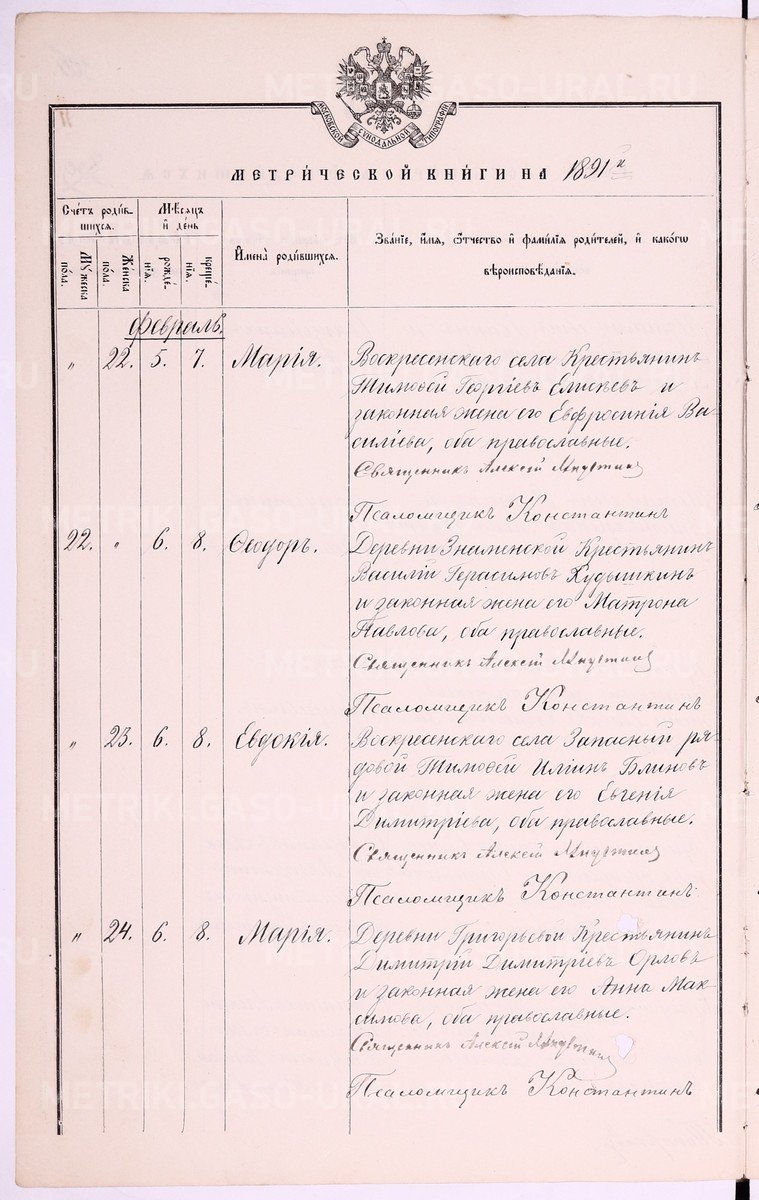 МОСКОВСКОЙ СѴНОДАЛЬНОЙ ТИПОГРАФІИ
МЕТРИ́ЧЕСКОЙ КНИ́ГИ НА 1891 й
Сче́тъ роди́в-
шихся.
Мѣ́сяцъ
и҆ де́нь
И҆мена̀ роди́вшихся.
Зва́нїе, и҆́мя, ѻ҆́тчество и҆ фами́лїя роди́телей, и҆ како́гѡ
вѣроисповѣ́данїя.
Му́жеска
по́ла.
Же́нска
по́ла.
рожде́-
нїя.
креще́-
нїя.
Февраль.
" 22. 5. 7. Марія. Воскресенскаго села Крестьянинъ
Тимоѳей Георгіевъ Елисѣевъ и
законная жена его Евфросинія Ва-
силіева, оба православные.
Священникъ Алексій
Псаломщикъ Константинъ
22. " 6. 8. Ѳеодоръ. Деревни Знаменской Крестьянинъ
Василій Герасимовъ Кудышкинъ
и законная жена его Матрона
Павлова, оба православные.
Священникъ Алексій
Псаломщикъ Константинъ
" 23. 6. 8. Евдокія. Воскресенскаго села Запасный ря-
довой Тимоѳей Иліинъ Блиновъ
и законная жена его Евгенія
Димитріева, оба православные.
Священникъ Алексій
Псаломщикъ Константинъ
" 24. 6. 8. Марія. Деревни Григорьевой Крестьянинъ
Димитрій Димитріевъ Орловъ
и законная жена его Анна Мак-
симова, оба православные.
Священникъ Алексій
Псаломщикъ Константинъ